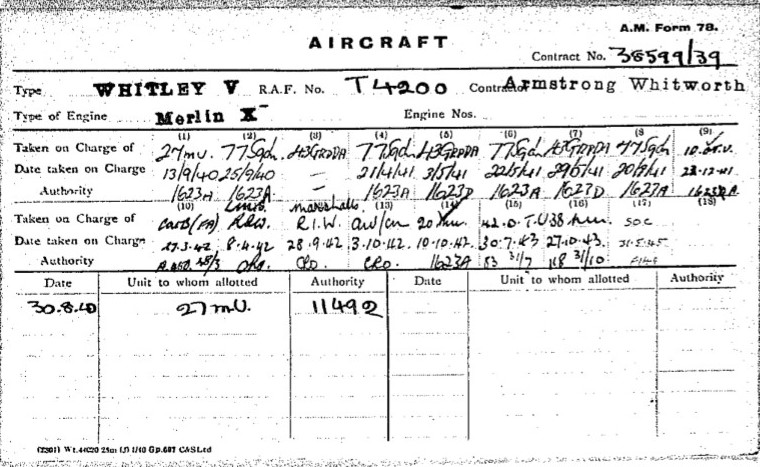 A.M. Form 78.
AIRCRAFT
Contract No. 38599/39
Type WHITLEY V R.A.F. No. T4200 Contractor Armstrong Whitworth
Type of Engine Merlin X Engine Nos.
(1) (2) (3) (4) (5) (6) (7) (8) (9)
Taken on Charge of 27 M.U. 77 Sqdn. 43 GRPDA 77 Sqdn 43 GRPDA 77 Sqdn 43 GRPDA 77 Sqdn
Date taken on Charge 13/9/40 25/9/40 — 21/4/41 3/5/41 22/5/41 29/5/41 20/9/41 23.12.41
Authority 1623A 1623A — 1623A 1623D 1623A 1623D 1623A
(10) (13) (14) (15) (16) (17) (18)
Marshalls
Taken on Charge of R.I.W. 42.O.T.U 38 M.U. S.O.C
Date taken on Charge 27.3.42 8.4.42 28.9.42 3.10.42 10.10.42. 30.7.43 27.10.43. 31.5.45
Authority CRO. CRO. 1623A 83 31/7 31/10
Date Unit to whom allotted Authority Date Unit to whom allotted Authority
30.8.40 27 M.U. 11492
(2301) Wt.44620 25m (3) 1/40 Gp.687 C&SLtd